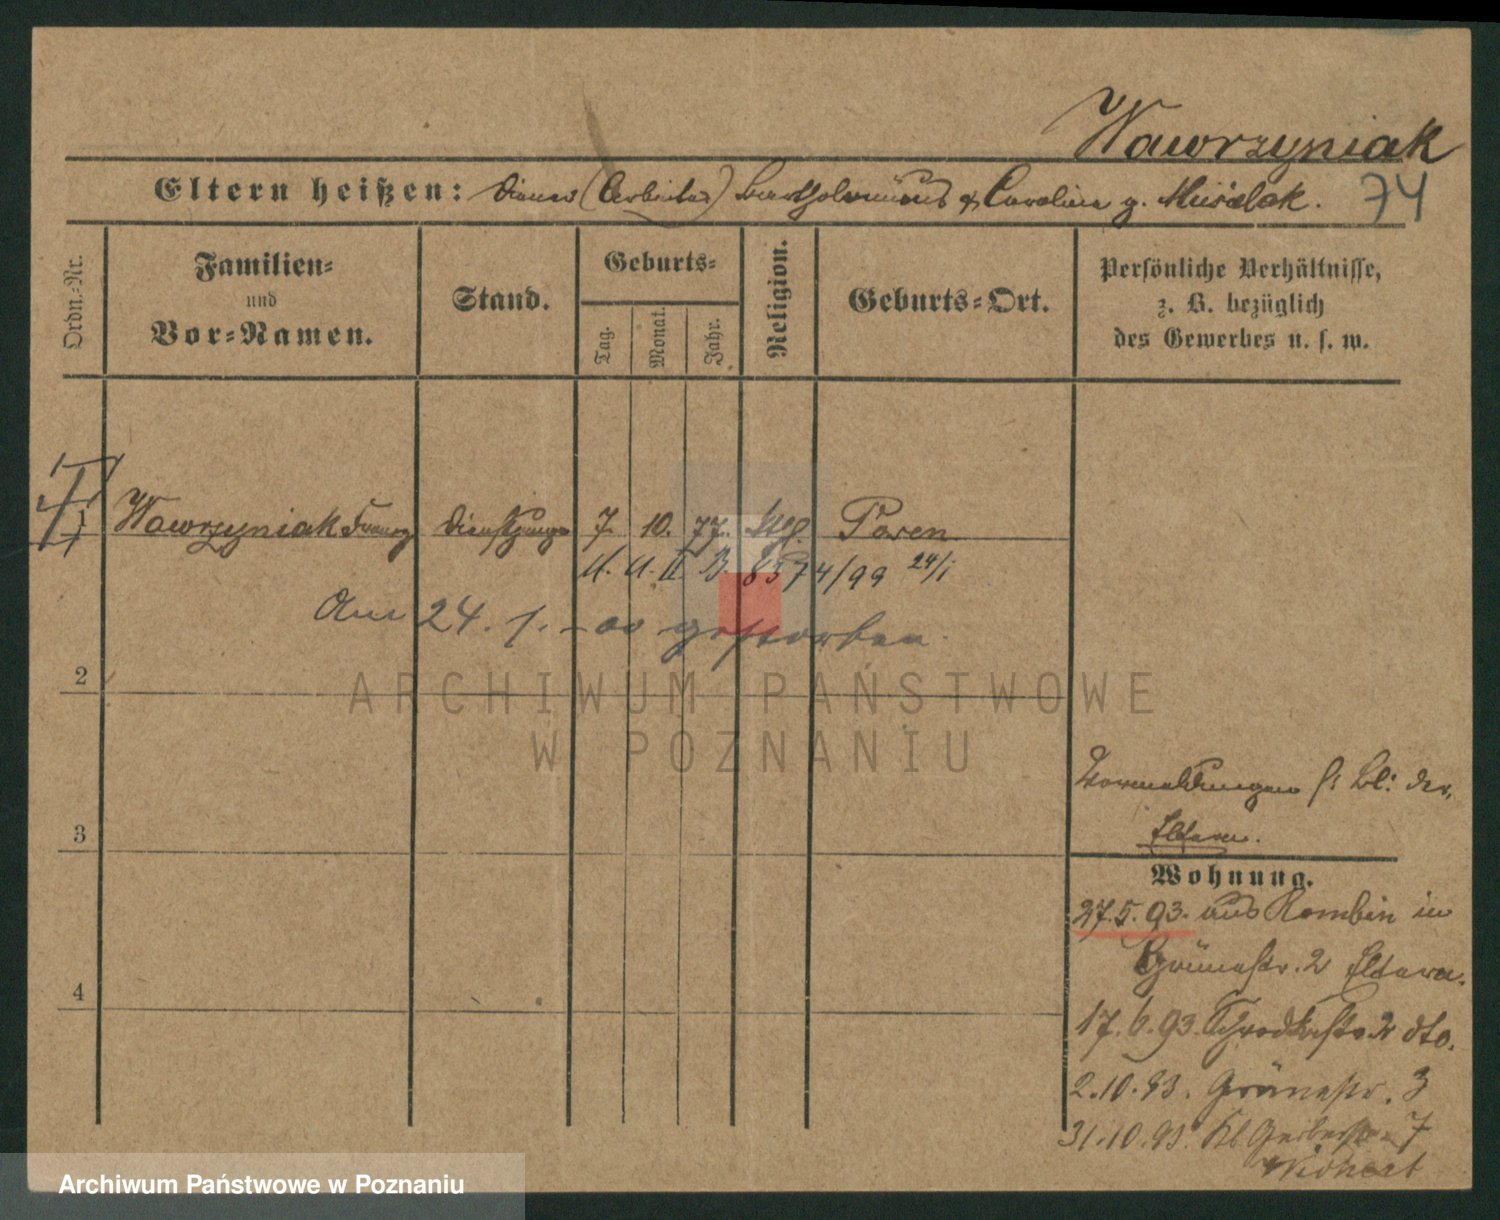 Wawrzyniak
Eltern heißen: Diener (Arbeiter) Bartholomäus & Carolina g. Musialek.
74
Ordn.-Nr.
Familien-
und
Vor-Namen.
Stand.
Geburts-
Tag.
Monat.
Jahr.
Religion.
Geburts-Ort.
Persönliche Verhältnisse,
z. B. bezüglich
des Gewerbes u. s. w.
1 Wawrzyniak Franz Dienstjunge 7. 10. 77. Posen
8574/99 24/1
Am 24. 1. 00 gestorben.
2
3
4
Vormeldungen s. Bl. der
Eltern.
Wohnung.
27.5.93. aus Rombin in
Grünestr. 2 Eltern.
17.6.93. Schrodkastr. 2 dto.
2.10.93. Grünestr. 3
31.10.93. Kl. Gerberstr. 7
ARCHIWUM PAŃSTWOWE
W POZNANIU
Archiwum Państwowe w Poznaniu